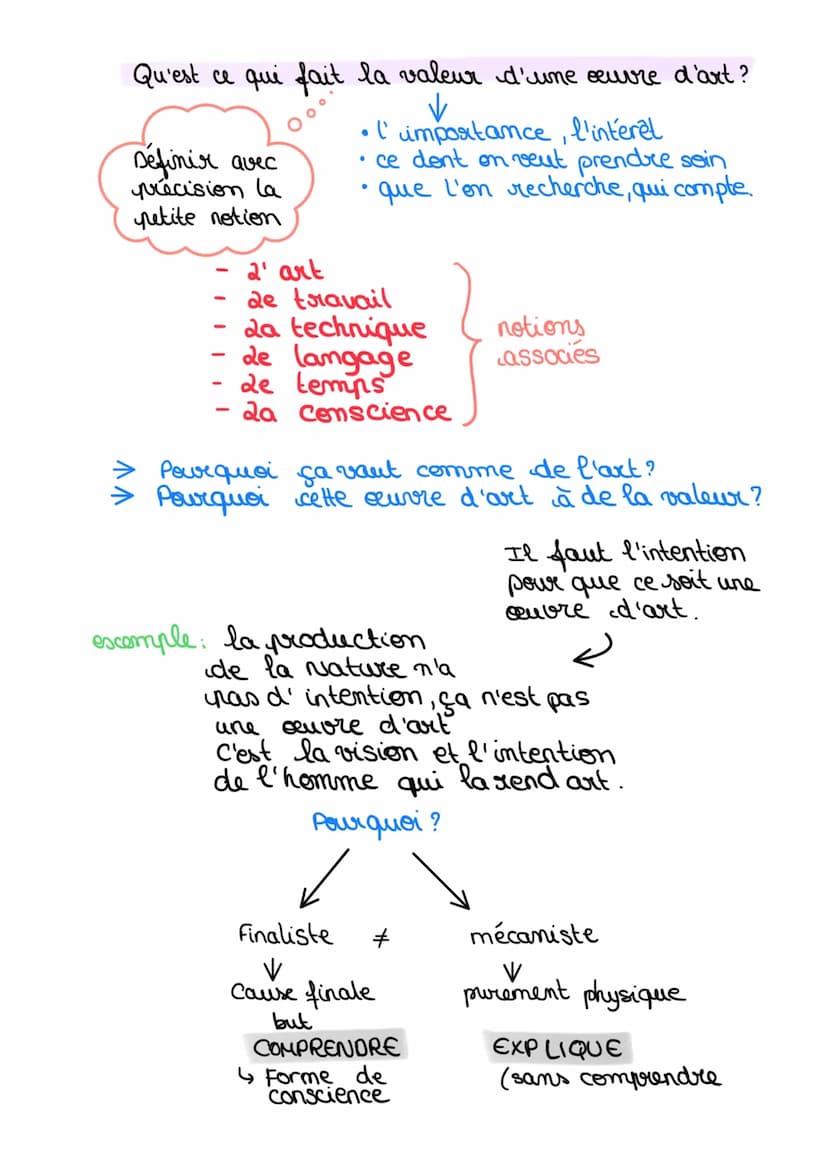 Qu'est ce qui fait la valeur d'une œuvre d'art ?
• l'importance, l'intérêt
• ce dont on veut prendre soin
• que l'on recherche, qui compte.
Définir avec
précision la
petite notion
- l'art
- le travail
- la technique
- le langage
- le temps
- la conscience
notions
associés
→ Pourquoi ça vaut comme de l'art ?
→ Pourquoi cette œuvre d'art à de la valeur ?
Il faut l'intention
pour que ce soit une
œuvre d'art.
exemple : la production
de la nature n'a
pas d'intention, ça n'est pas
une œuvre d'art
C'est la vision et l'intention
de l'homme qui la rend art.
Pourquoi ?
Finaliste ≠ mécaniste
Cause finale
but
COMPRENDRE
↳ Forme de
conscience
purement physique
EXPLIQUE
(sans comprendre